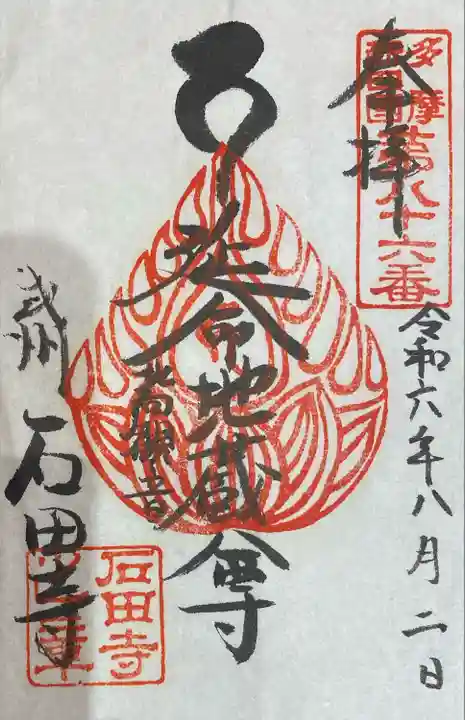 奉拝
多摩
新四国
第八十六番
令和六年八月二日
延命地蔵尊
武州 石田寺
石田寺